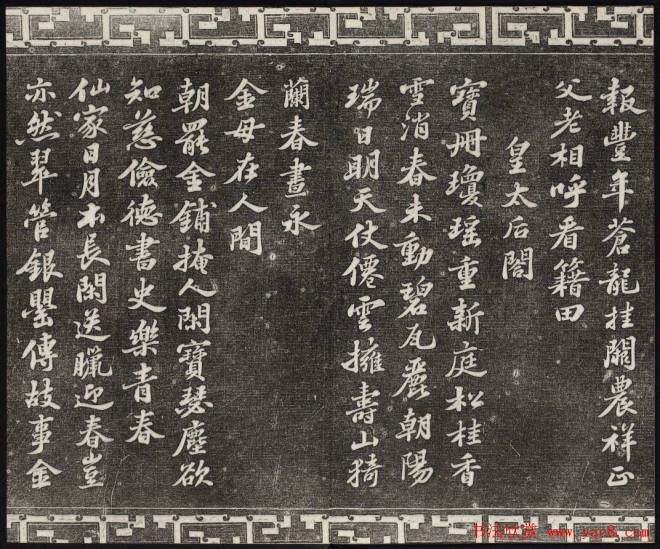 報豐年蒼龍挂闕農祥正
父老相呼看籍田
皇太后閤
寶冊瓊瑤重新庭松桂香
雪消春未動碧瓦麗朝陽
瑞日明天仗僊雲擁壽山猗
蘭春晝永
金母在人間
朝罷金鋪掩人閑寶瑟塵欲
知慈儉德書史樂青春
仙家日月本長閑送臘迎春豈
亦然翠管銀罌傳故事金
书法欣赏 www.yac8.com